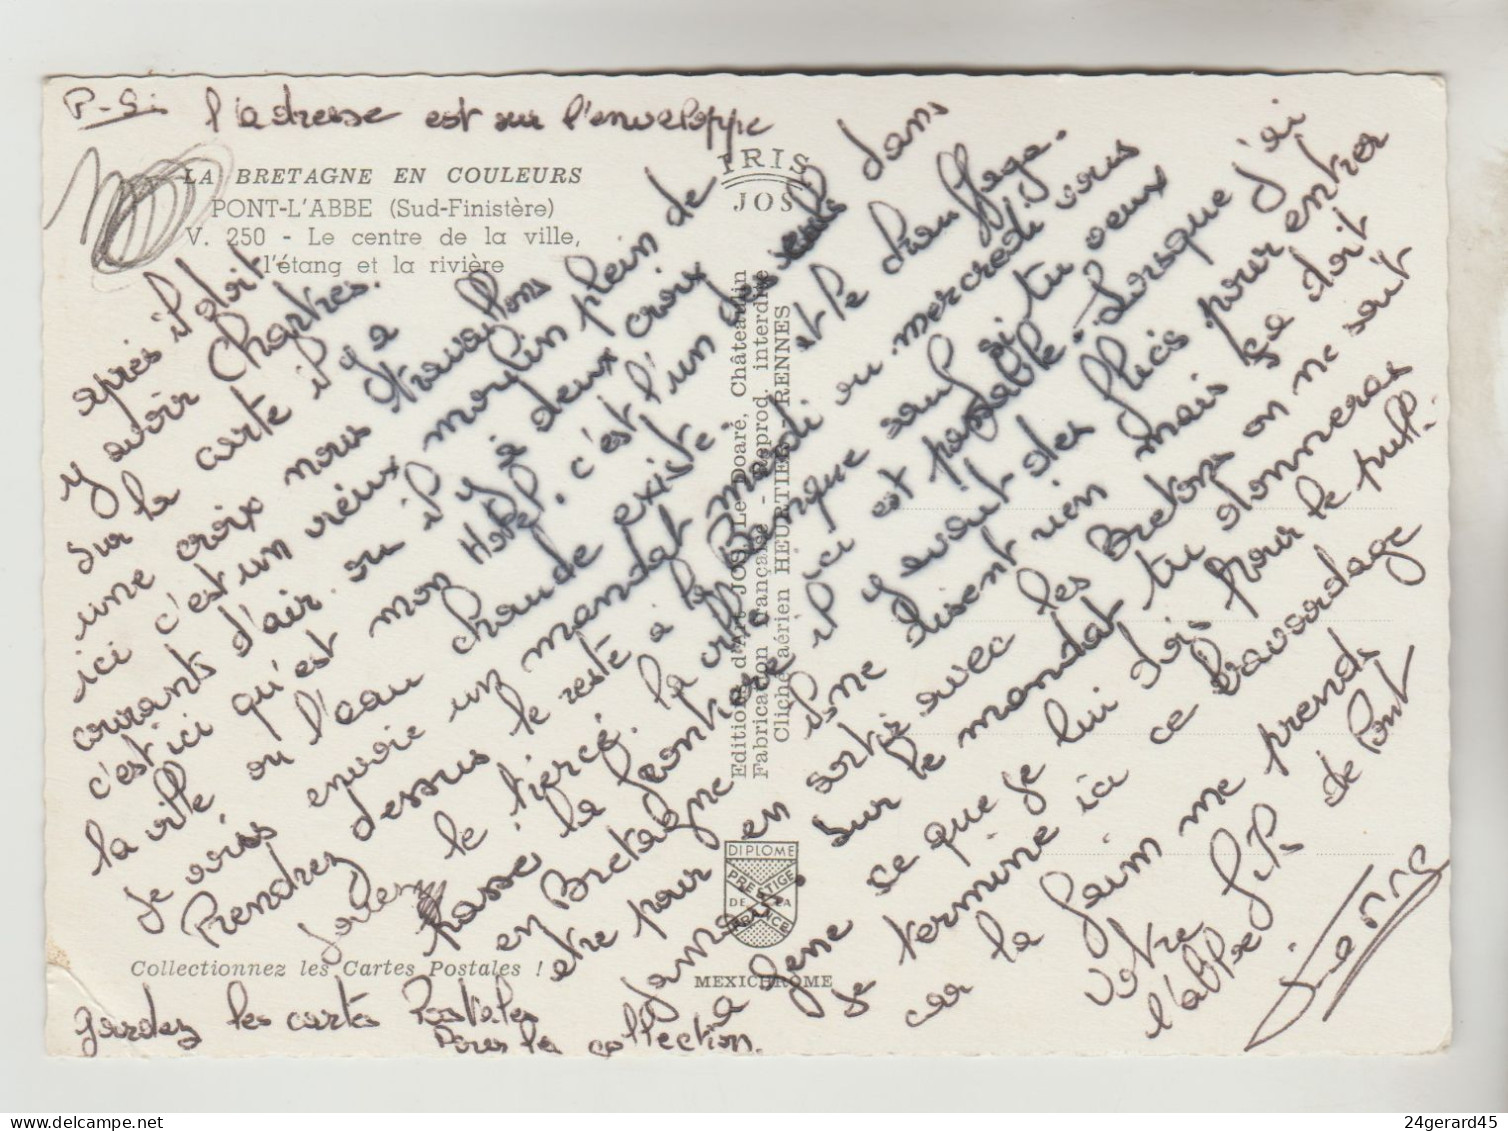 P-S: l'adresse est sur l'enveloppe
LA BRETAGNE EN COULEURS
PONT-L'ABBE (Sud-Finistère)
V. 250 - Le centre de la ville,
l'étang et la rivière
IRIS
JOS
Editions d'Art JOS Le Doaré, Châteaulin
Fabrication française - Reprod. interdite
Cliché aérien HEURTIER - RENNES
après il doit
y avoir Chartres.
Sur la carte il y a
une croix nous travaillons
ici c'est un vieux moulin plein de
courants d'air ou il y a deux croix
c'est ici qu'est mon Hotel, c'est l'un des seuls dans
la ville ou l'eau chaude existe. et le chauffage.
Je vais envoie un mandat mardi ou mercredi vous
Prendrez dessus le reste a la Banque sauf si tu veux
jouer le tiercé.
Passé la frontiere il y avait des flics pour entrer
en Bretagne ils ne disent rien mais ça doit
etre pour en sortir avec les Bretons on ne sait
jamais. Sur le mandat tu donneras
a Gene ce que je lui dois pour le pull.
Je termine ici ce bavardage
car la faim me prends
votre de Pont
l'abbe
DIPLOME
PRESTIGE
DE LA
FRANCE
MEXICHROME
Collectionnez les Cartes Postales !
gardez les cartes Postales
Pour la collection.
24gerard45